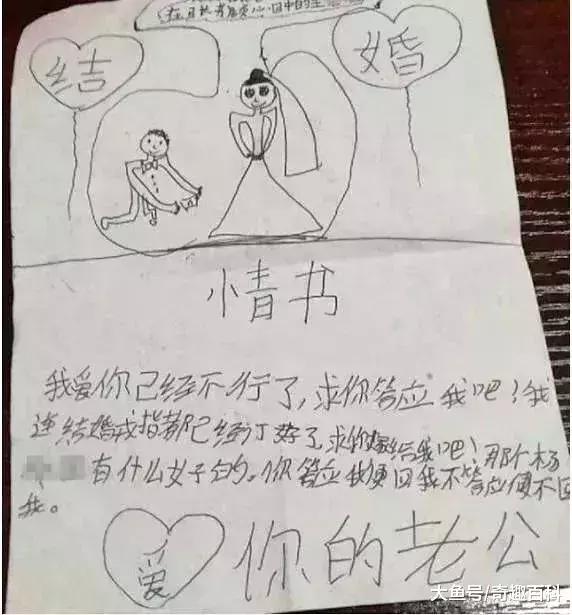 心目中的
结
婚
情书
我爱你已经不行了,求你答应我吧!我
连结婚戒指都已经订好了,求你嫁给我吧!那个杨
有什么好的。你答应我便回我不答应便不回
我。
爱 你的老公
大鱼号/奇趣百科